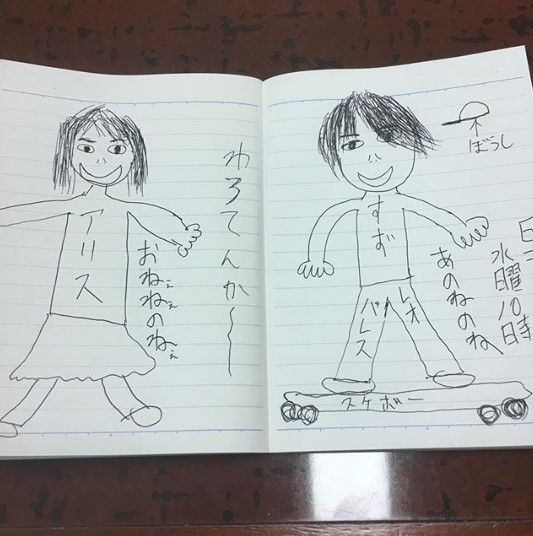 アリス
おねぇねぇのねぇ
わろてんか〜
すず
レオ
パレス
あのねのね
スケボー
ぼうし
水曜10時